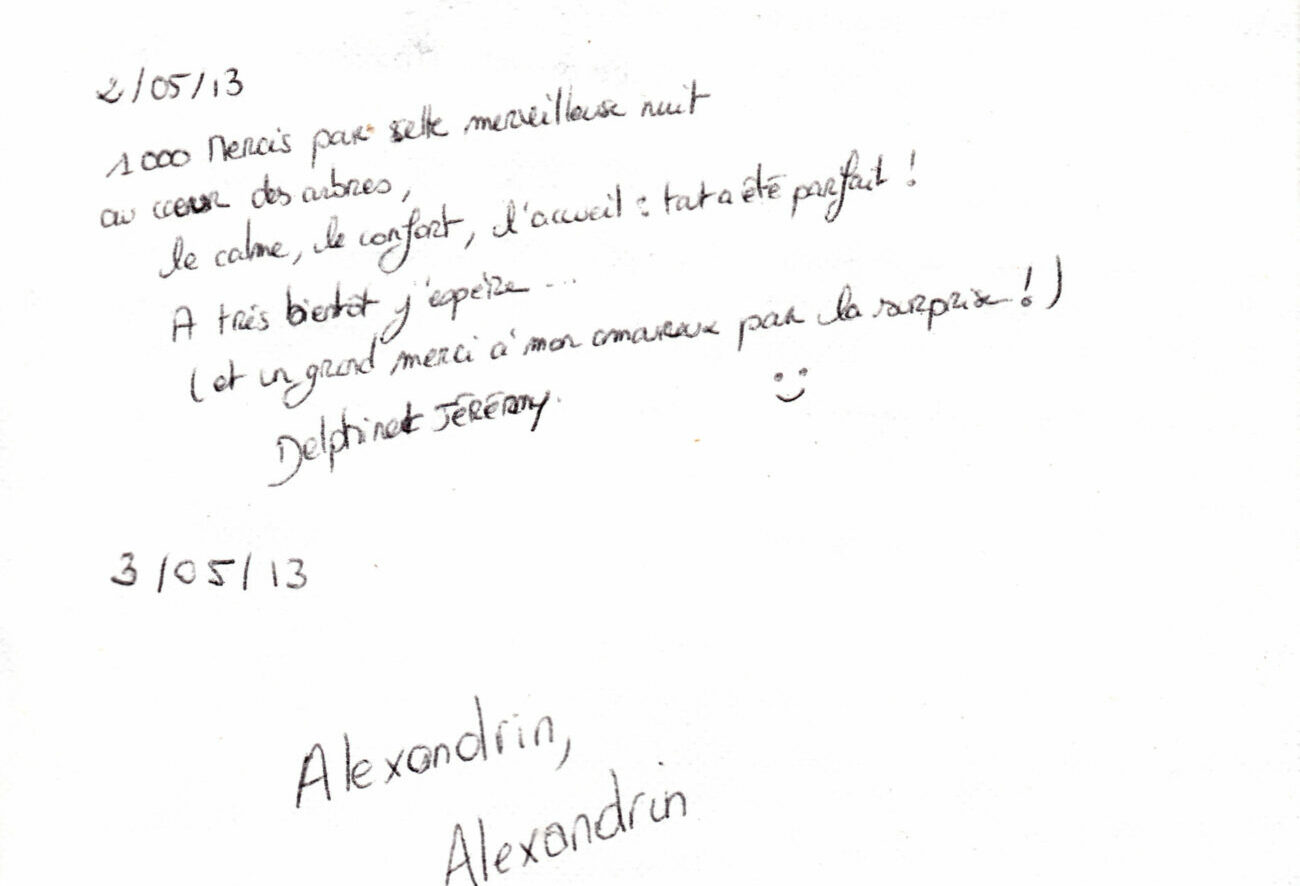 2/05/13
1000 Mercis pour cette merveilleuse nuit
au coeur des arbres,
le calme, le confort, l'accueil : tout a été parfait !
A très bientôt j'espère ...
(et un grand merci à mon amoureux pour la surprise !)
Delphine et JÉRÉMY.
3/05/13
Alexandrin,
Alexandrin